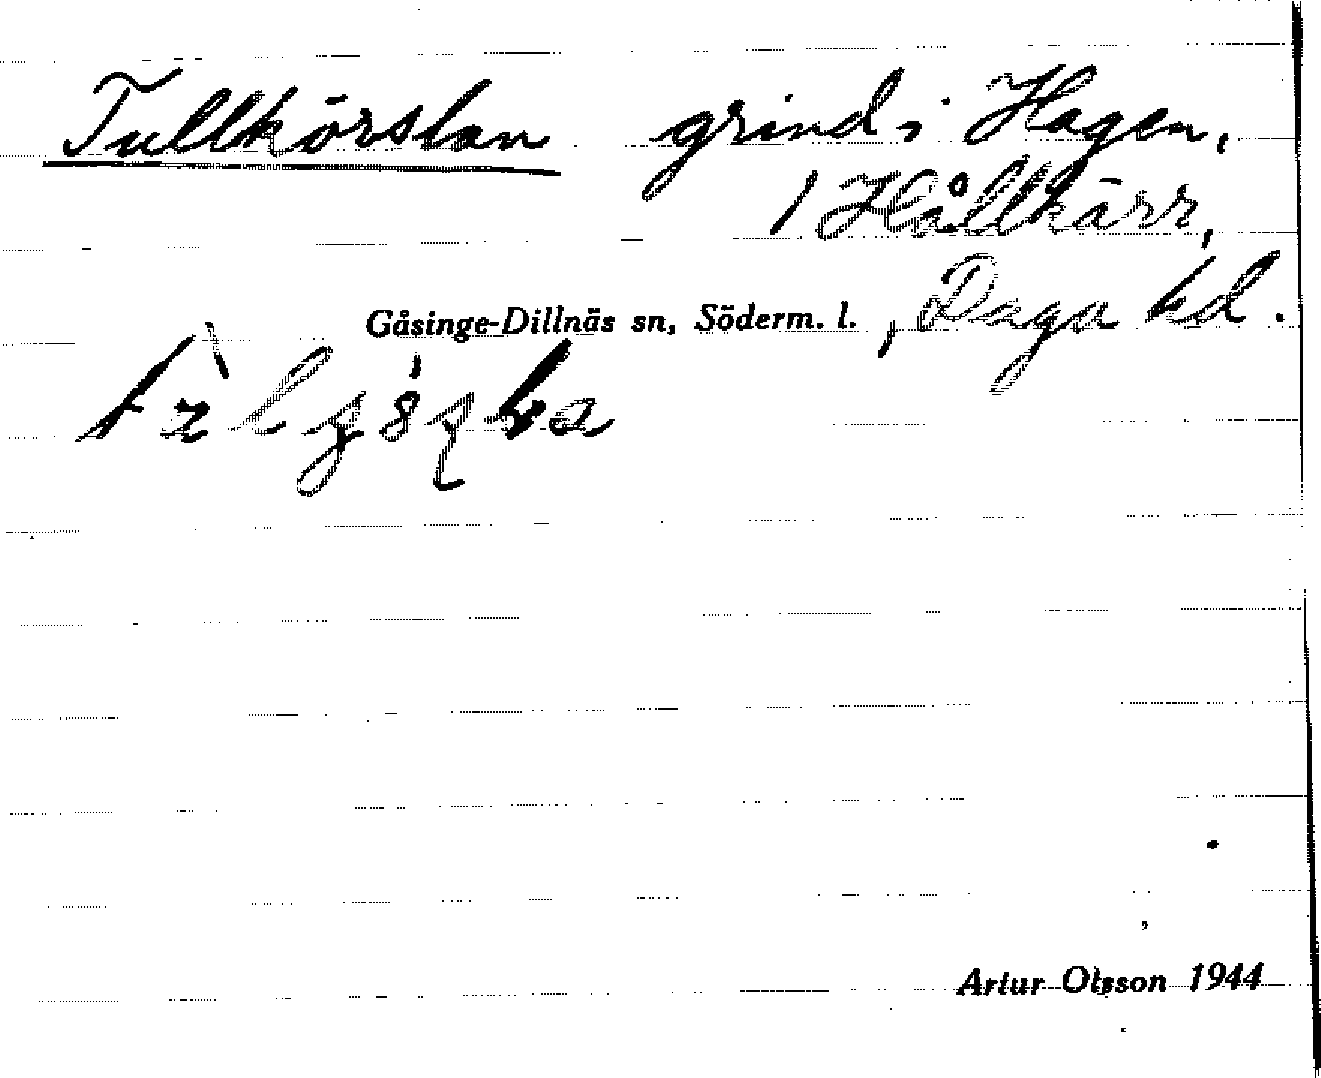 Tullkörslan grind i Hagen,
1 Hållkärr,
Gåsinge-Dillnäs sn, Söderm. l. , Daga hd.
Artur Olsson 1944